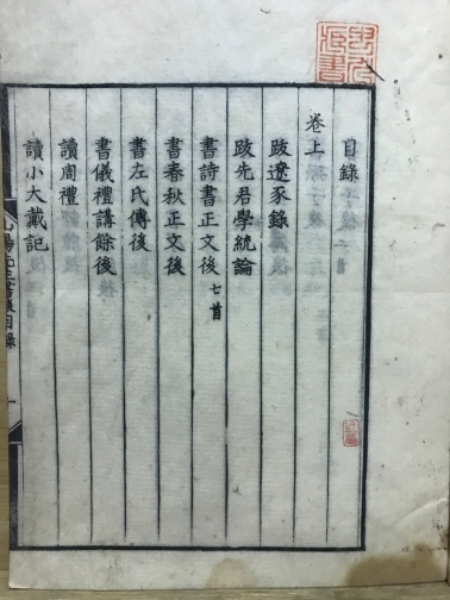 目錄
卷上
跋遼豕錄
跋先君學統論
書詩書正文後 七首
書春秋正文後
書左氏傳後
書儀禮講餘後
讀周禮
讀小大戴記